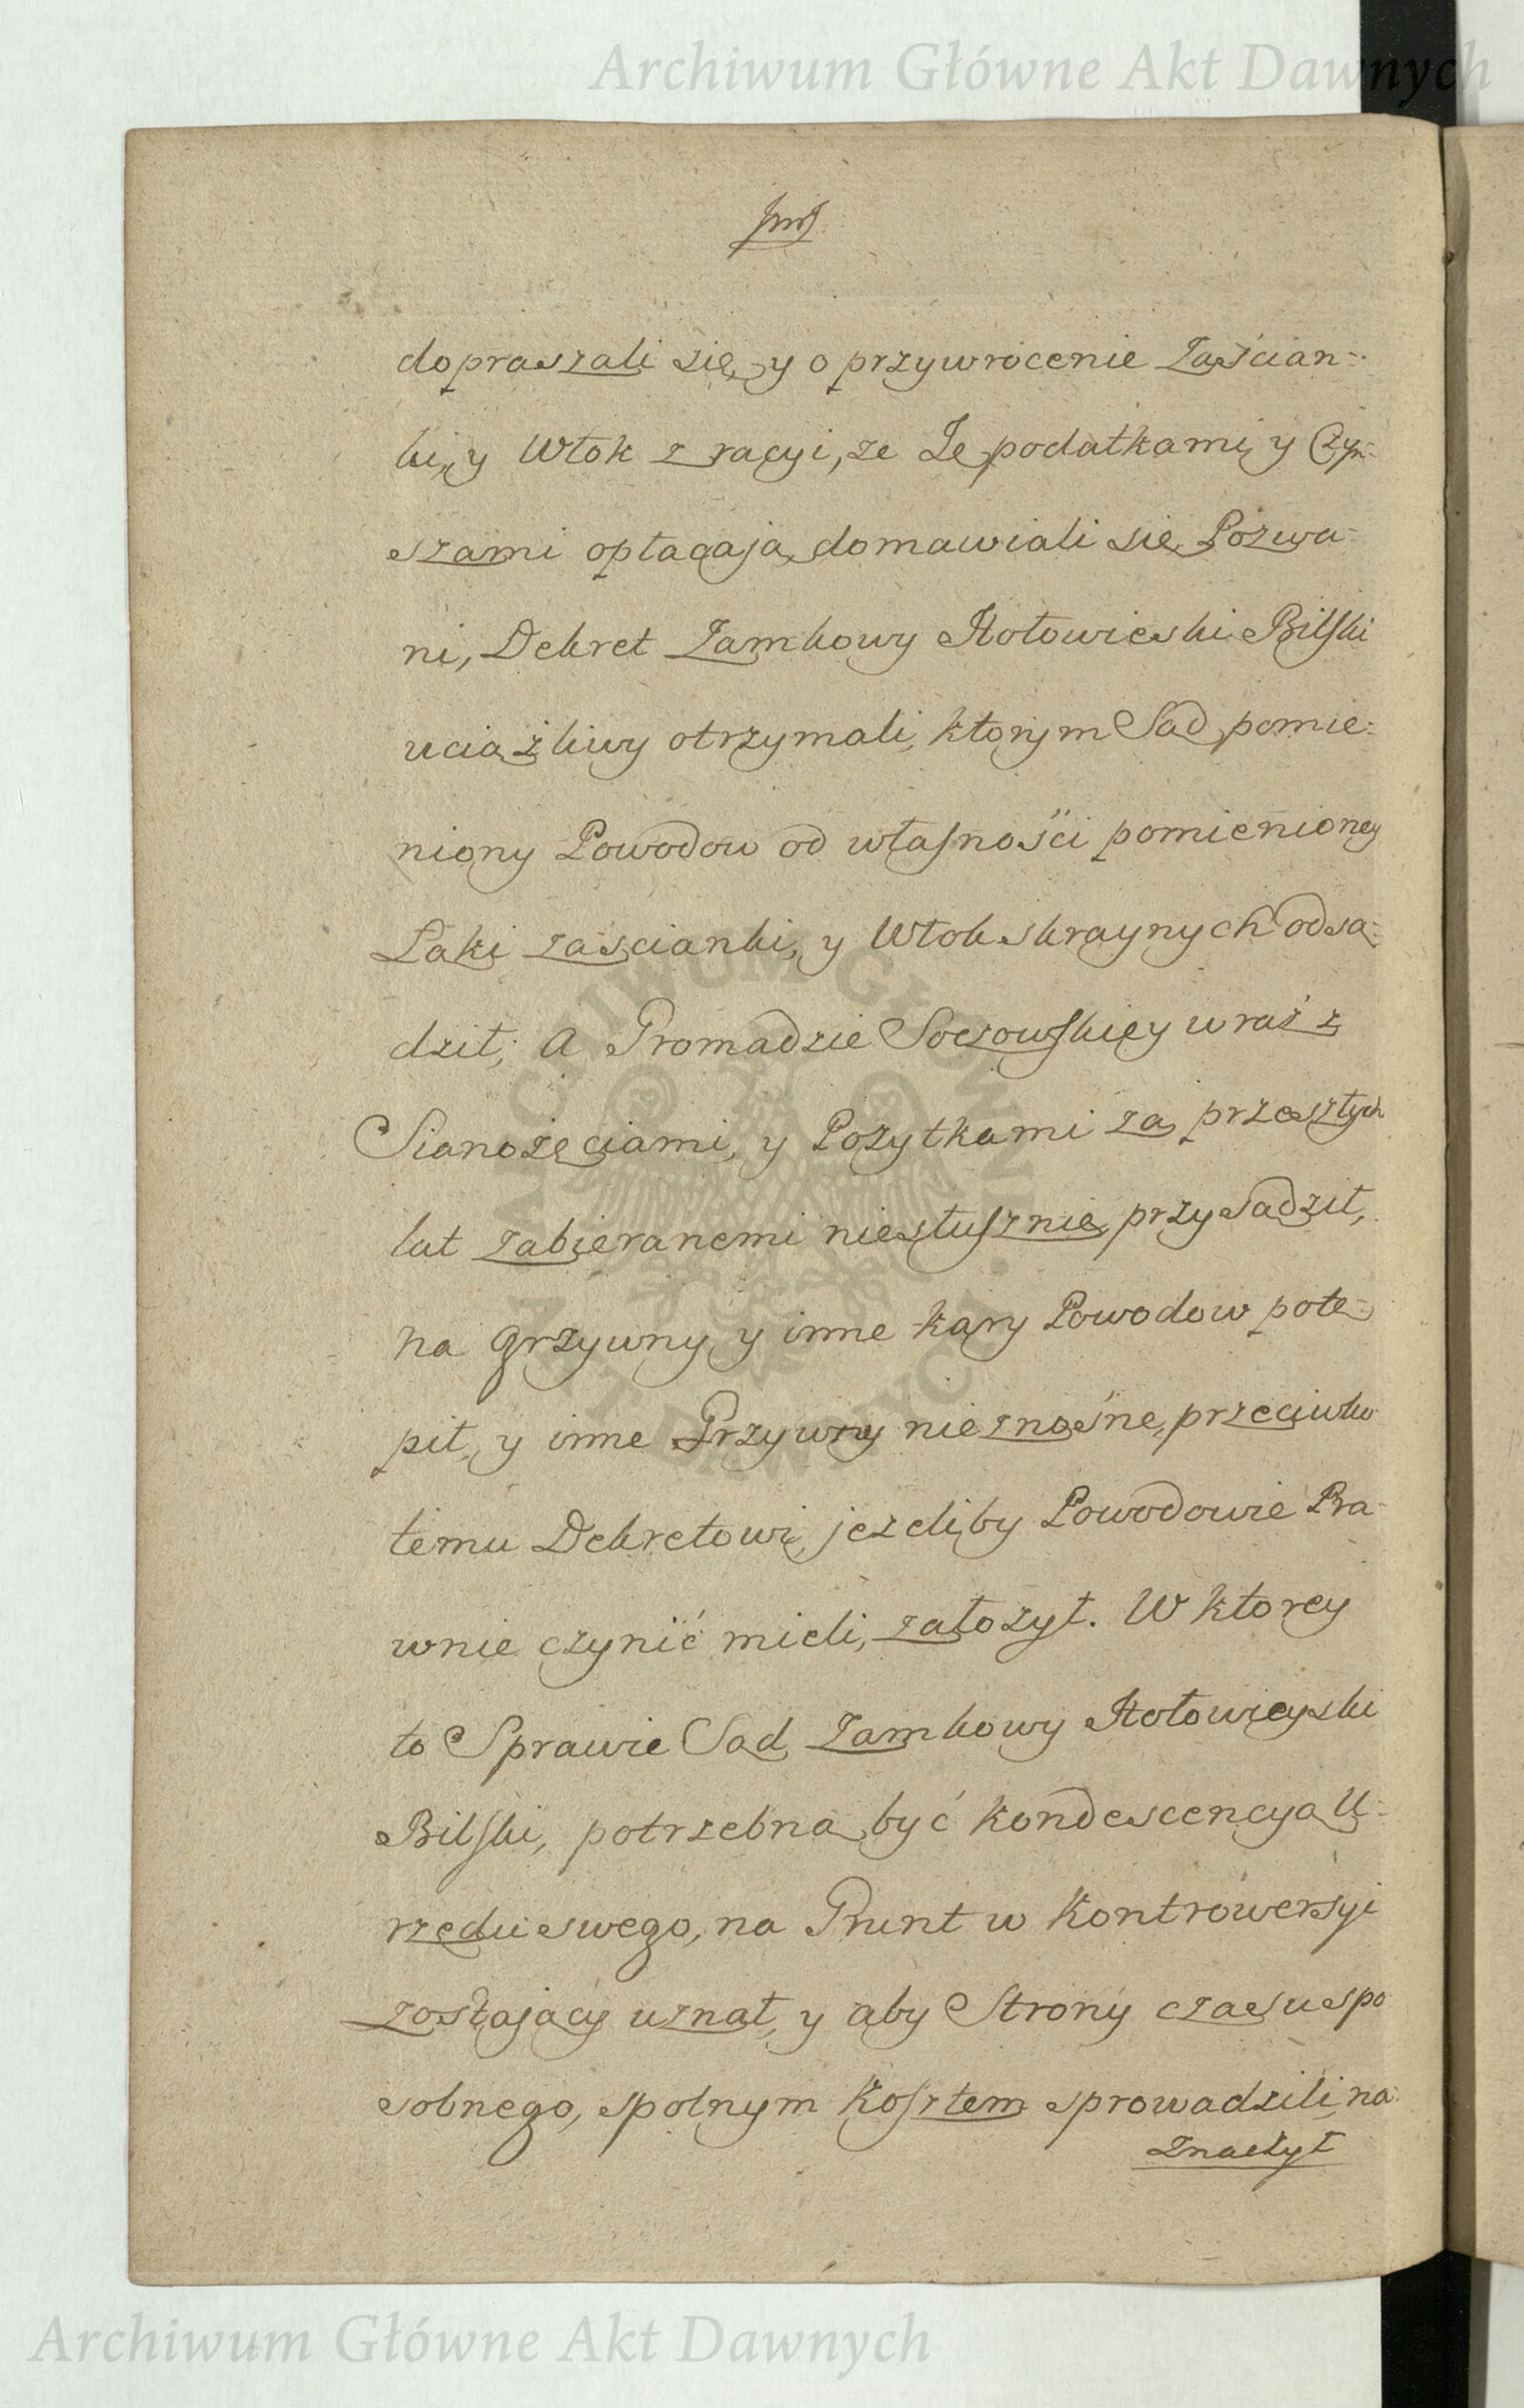 Archiwum Główne Akt Dawnych
dopraszali się, y o przywrocenie Zaścian=
ki, y Włok z racyi, ze Ie podatkami, y Czyn=
szami opłacają, domawiali się Pozwa=
ni, Dekret Zamkowy Hołowieski Bilski
uciążliwy otrzymali, ktorym Sąd pomie=
niony Powodow od własności pomienioney
Łąki zaścianki, y Włok skraynych odsą=
dził; A Gromadzie Soczowskiey wraz z
Sianożęciami, y Pożytkami za przeszłych
lat zabieranemi niesłusznie, przysądził,
na grzywny, y inne kary Powodow potę=
pił, y inne Grzywny nieznośne, przeciwko
temu Dekretowi, jezeliby Powodowie Pra=
wnie czynić mieli, założył. W ktorey
to Sprawie Sąd Zamkowy Hołowieyski
Bilski, potrzebną być kondescencyą U=
rzędu swego, na Grunt w Kontrowersyi
zostający uznał, y aby Strony czasu spo
sobnego, spolnym Kosztem sprowadzili, na=
znaczył
ARCHIWUM GŁÓWNE AKT DAWNYCH
Archiwum Główne Akt Dawnych